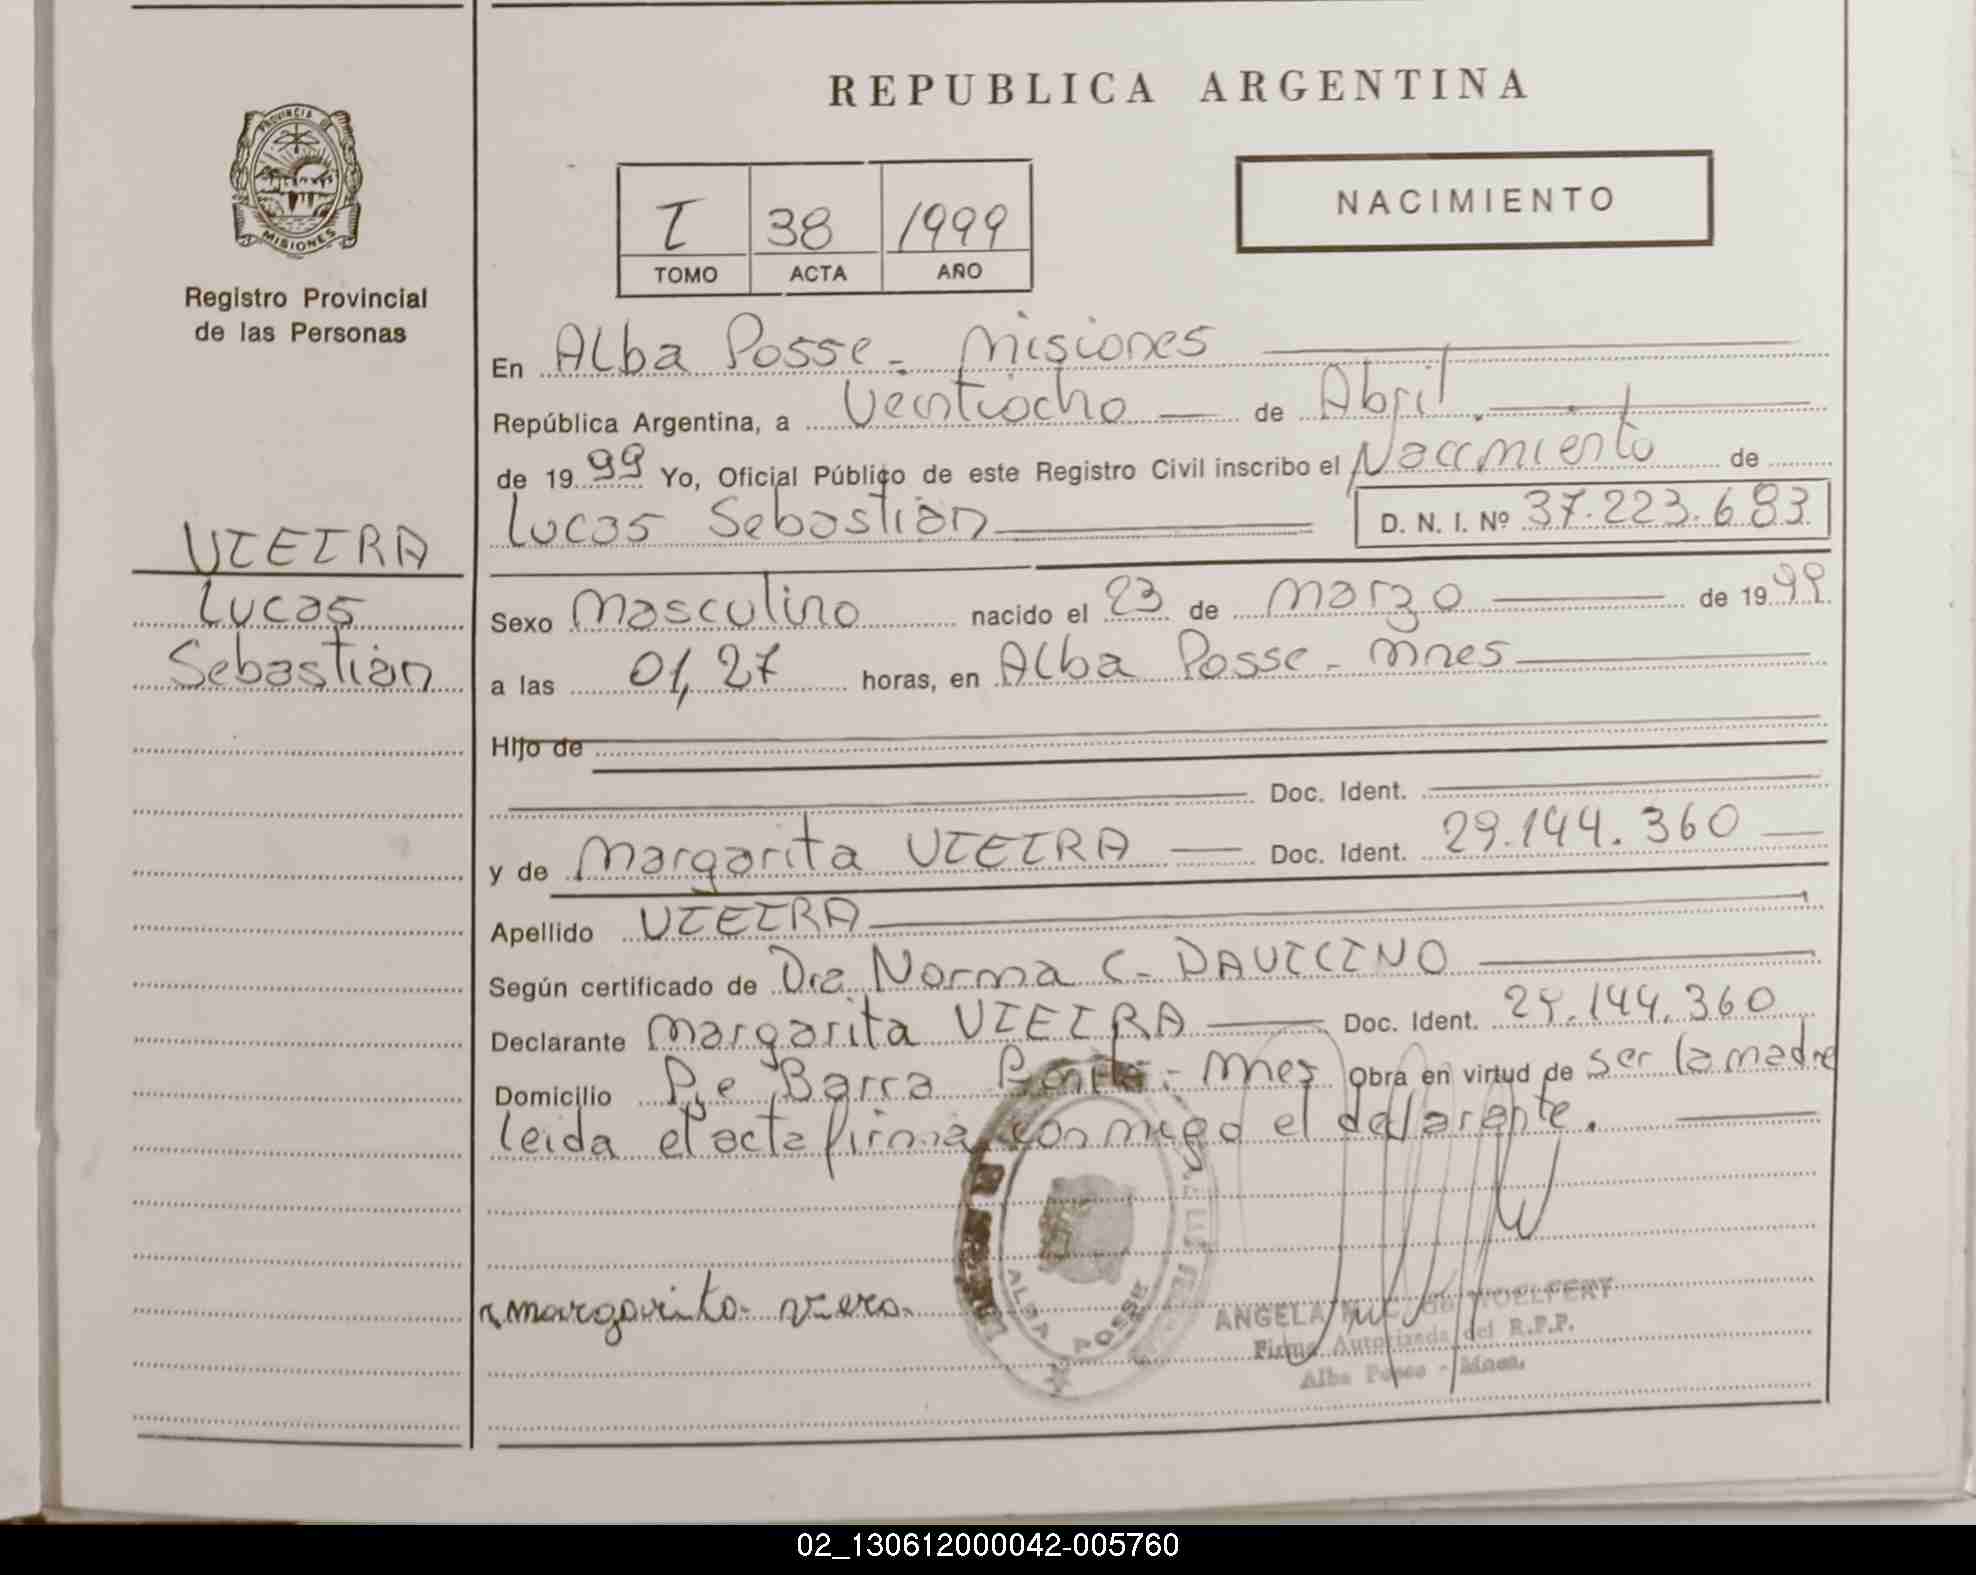 REPUBLICA ARGENTINA
PROVINCIA DE
MISIONES
Registro Provincial
de las Personas
I 38 1999
TOMO ACTA AÑO
NACIMIENTO
En Alba Posse - Misiones
República Argentina, a Veintiocho de Abril.
de 1999 Yo, Oficial Público de este Registro Civil inscribo el Nacimiento de
Lucas Sebastián D. N. I. Nº 37.223.683
VIEIRA
Lucas
Sebastián
Sexo Masculino nacido el 23 de Marzo de 1999
a las 01,27 horas, en Alba Posse - Mnes
Hijo de
Doc. Ident.
y de Margarita VIEIRA Doc. Ident. 29.144.360
Apellido VIEIRA
Según certificado de Dra Norma C. DAVICINO
Declarante Margarita VIEIRA Doc. Ident. 29.144.360
Domicilio Pje Barra Bonita - Mnes Obra en virtud de ser la madre
leida el acta firma conmigo el declarante.
margarita
ALBA POSSE
ANGELA de WOELFERT
Firma Autorizada del R.P.P.
Alba Posse - Mnes.
02_130612000042-005760